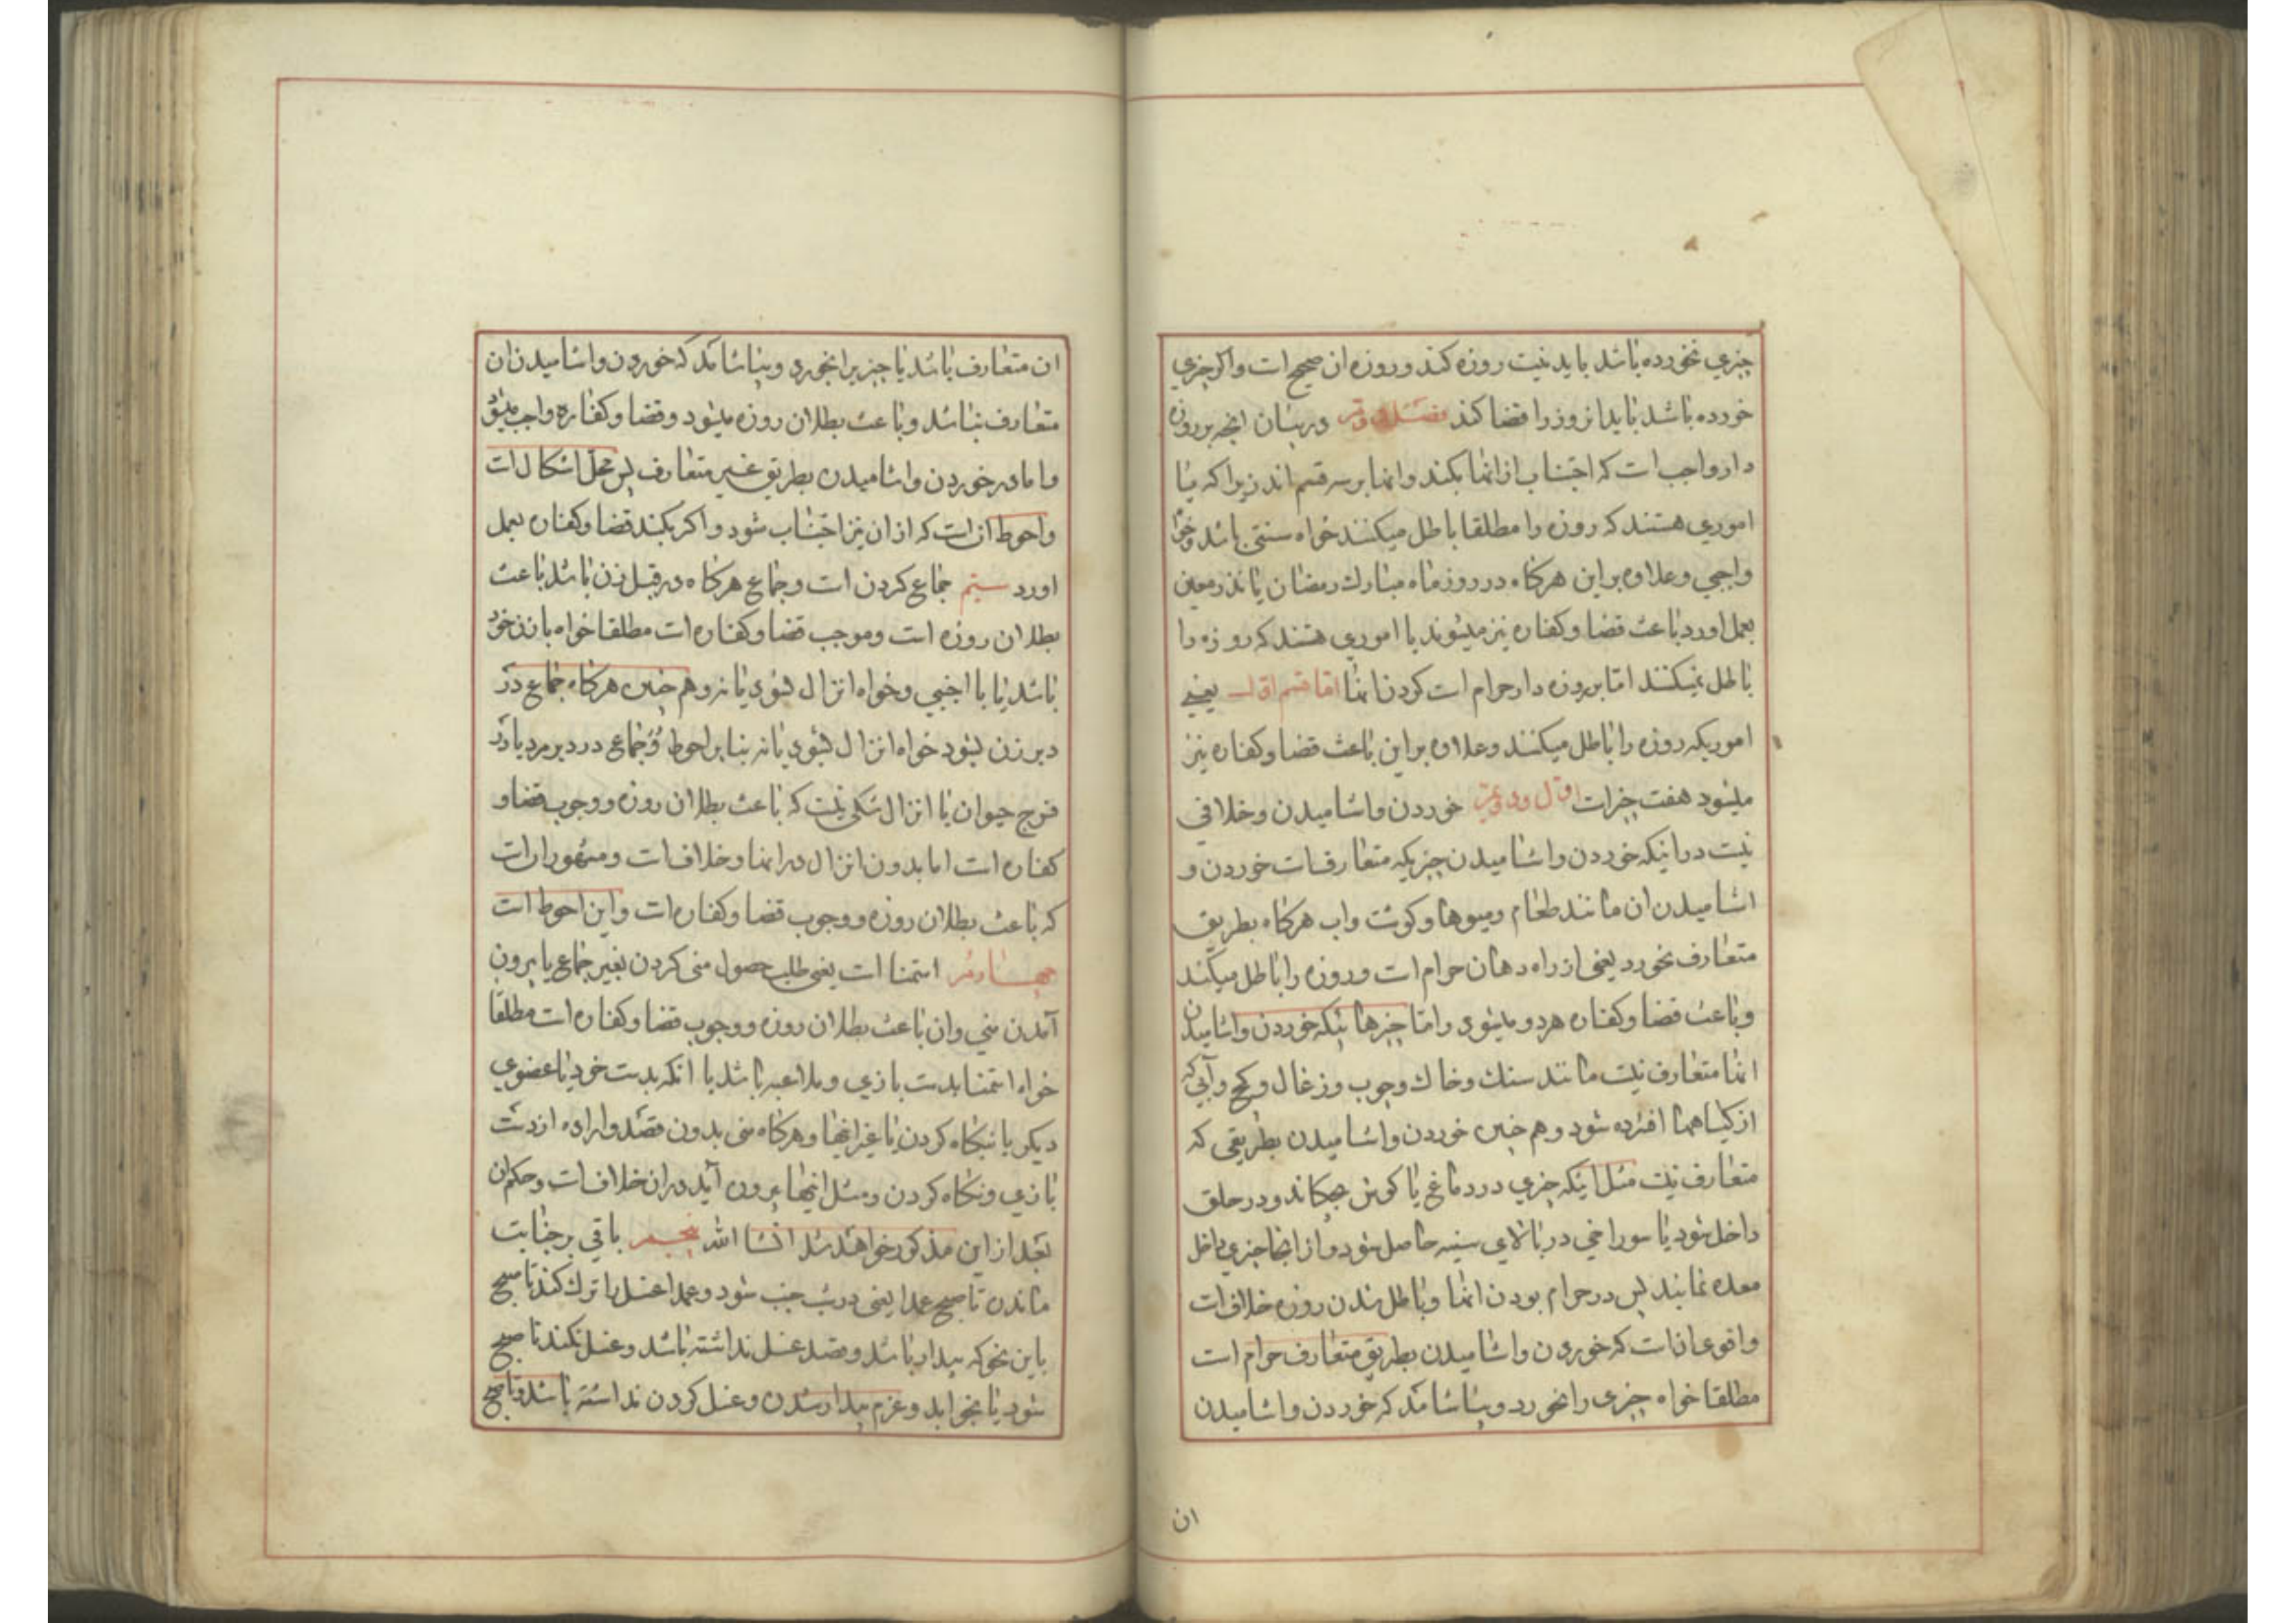 چیزی نخورده باشد باید نیت روزه کند و روزه ان صحیح است و اکر چیزی
خورده باشد باید انروز را قضا کند فصل دویم در بیان انچه بر روزه
دار واجب است که اجتناب از انها بکند و انها بر سه قسم اند زیرا که یا
اموری هستند که روزه را مطلقا باطل میکنند خواه سنتی باشد و خواه
واجبی و علاوه براین هرکاه در روز ماه مبارك رمضان یا نذر معین
بعمل اورد باعث قضا و کفاره نیز میشوند یا اموری هستند که روزه را
باطل نمیکنند اما بر روزه دار حرام است کردن انها اما قسم اول یعنی
اموریکه روزه را باطل میکنند و علاوه براین باعث قضا و کفاره نیز
میشود هفت چیز است اول و دویم خوردن و اشامیدن و خلافی
نیست در اینکه خوردن و اشامیدن چیزیکه متعارفست خوردن و
اشامیدن ان مانند طعام و میوها و کوشت و اب هرکاه بطریق
متعارف بخورد یعنی از راه دهان حرام است و روزه را باطل میکند
و باعث قضا و کفاره هردو میشود و اما چیزهائیکه خوردن و اشامیدن
انها متعارف نیست مانند سنك و خاك و چوب و زغال و کچ و آبی که
از کیاهها افشرده شود و هم چنین خوردن و اشامیدن بطریقی که
متعارف نیست مثل اینکه چیزی در دماغ یا کوش چکاند و در حلق
داخل شود یا سوراخی در بالای سینه حاصل شود و از انجا چیزی داخل
معده نمایند پس در حرام بودن انها و باطل شدن روزه خلاف است
و اقوی ان است که خوردن و اشامیدن بطریق متعارف حرام است
مطلقا خواه چیزی را بخورد و بیاشامد که خوردن و اشامیدن
ان
ان متعارف باشد یا چیزیرا بخورد و بیاشامد که خوردن و اشامیدن ان
متعارف نباشد و باعث بطلان روزه میشود و قضا و کفاره واجب میشود
و اما در خوردن و اشامیدن بطریق غیر متعارف پس محل اشکال است
و احوط ان است که از ان نیز اجتناب شود و اکر بکند قضا و کفاره بعمل
اورد سیم جماع کردن است و جماع هرکاه در قبل زن باشد باعث
بطلان روزه است و موجب قضا و کفاره است مطلقا خواه با زن خود
باشد یا با اجنبی و خواه انزال بشود یا نه و هم چنین هرکاه جماع در
دبر زن بشود خواه انزال بشود یا نه بنابر احوط و جماع در دبر مرد یا در
فرج حیوان با انزال شکی نیست که باعث بطلان روزه و وجوب قضا و
کفاره است اما بدون انزال در انها خلاف است و مشهور ان است
که باعث بطلان روزه و وجوب قضا و کفاره است و این احوط است
چهارم استمنا است یعنی طلب حصول منی کردن بغیر جماع یا بیرون
آمدن منی و ان باعث بطلان روزه و وجوب قضا و کفاره است مطلقا
خواه استمنا بدست بازی و ملاعبه باشد یا انکه بدست خود یا عضوی
دیکر یا بنکاه کردن یا غیر اینها و هرکاه منی بدون قصد و اراده از دست
بازی و نکاه کردن و مثل اینها بیرون آید در ان خلاف است و حکم ان
بعد از این مذکور خواهد شد انشا الله پنجم باقی بر جنابت
ماندن تا صبح عمدا یعنی در شب جنب شود و عمدا غسل را ترك کند تا صبح
باین نحو که بیدار باشد و قصد غسل نداشته باشد و غسل نکند تا صبح
شود یا بخوابد و عزم بیدار شدن و غسل کردن نداشته باشد و تا صبح